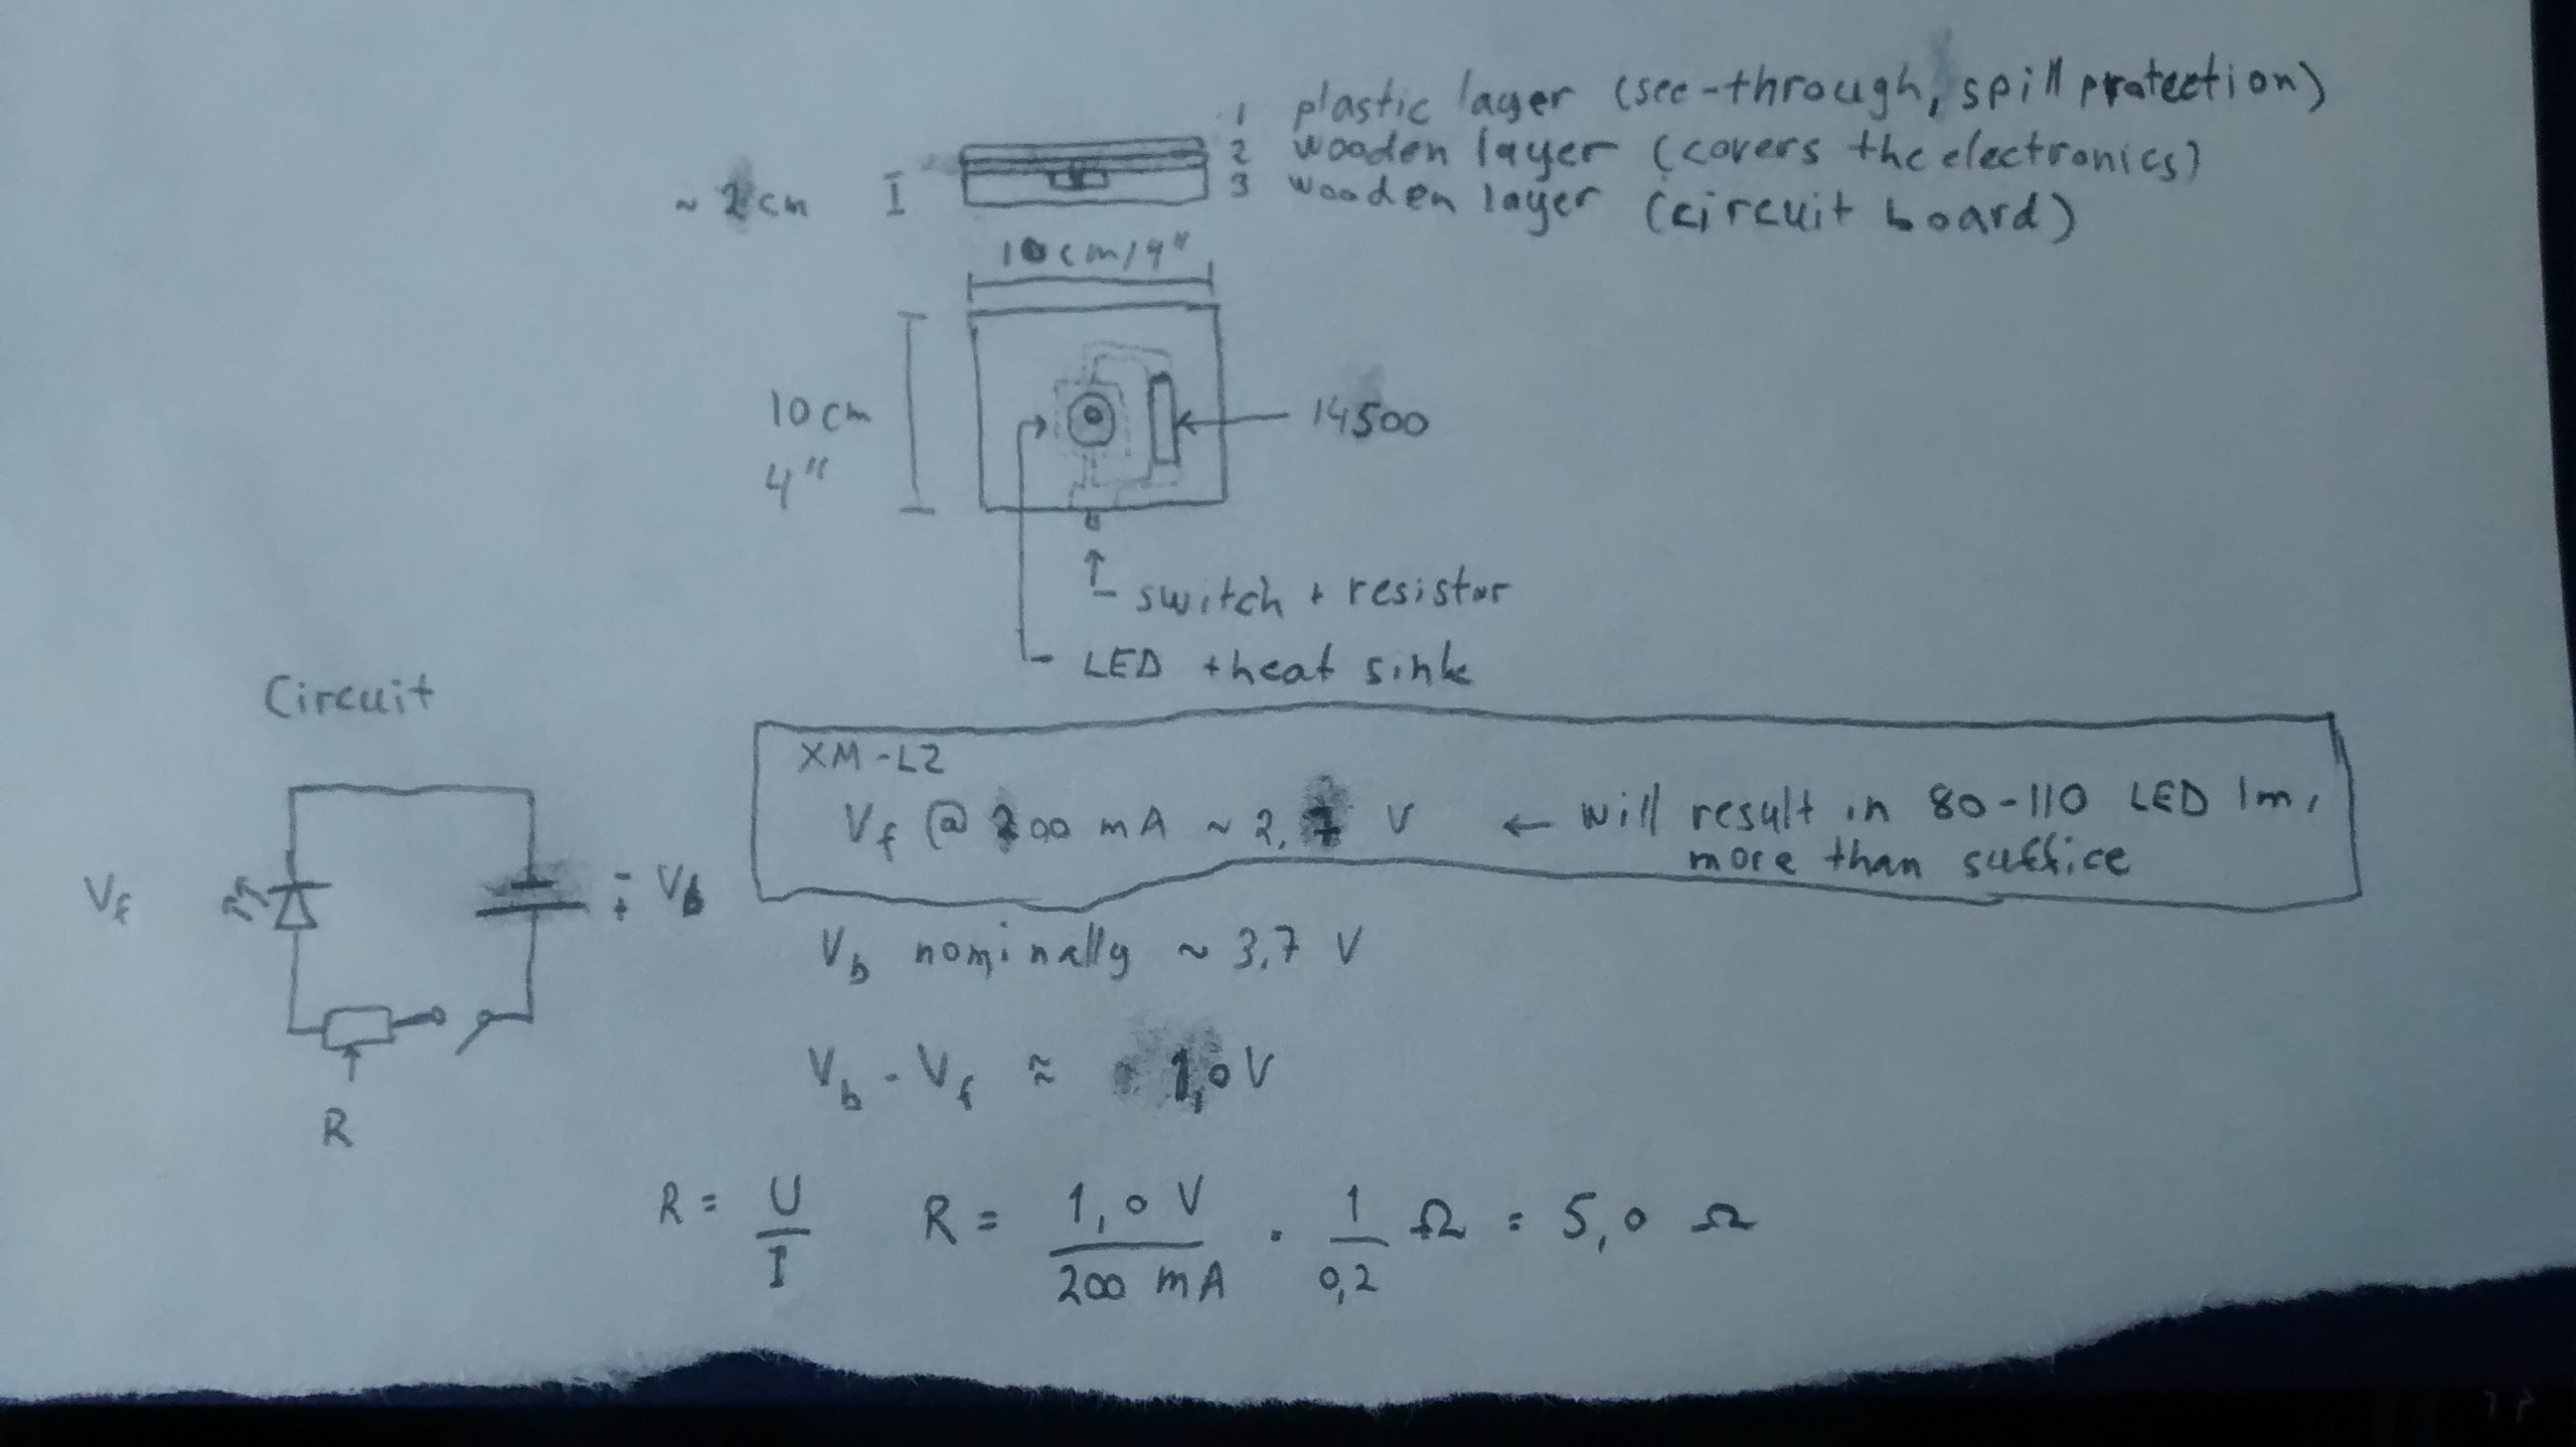 1 plastic layer (see-through, spill protection)
2 wooden layer (covers the electronics)
3 wooden layer (circuit board)
~ 2 cm
10 cm / 4"
10 cm
4"
14500
switch + resistor
LED + heat sink
Circuit
XM-L2
Vf @ 200 mA ~ 2,7 V ← will result in 80-110 LED lm,
more than suffice
Vf
- Vb
+
Vb nominally ~ 3,7 V
Vb - Vf ≈ 1,0 V
R
R = U/I R = 1,0 V / 200 mA · 1/0,2 Ω = 5,0 Ω